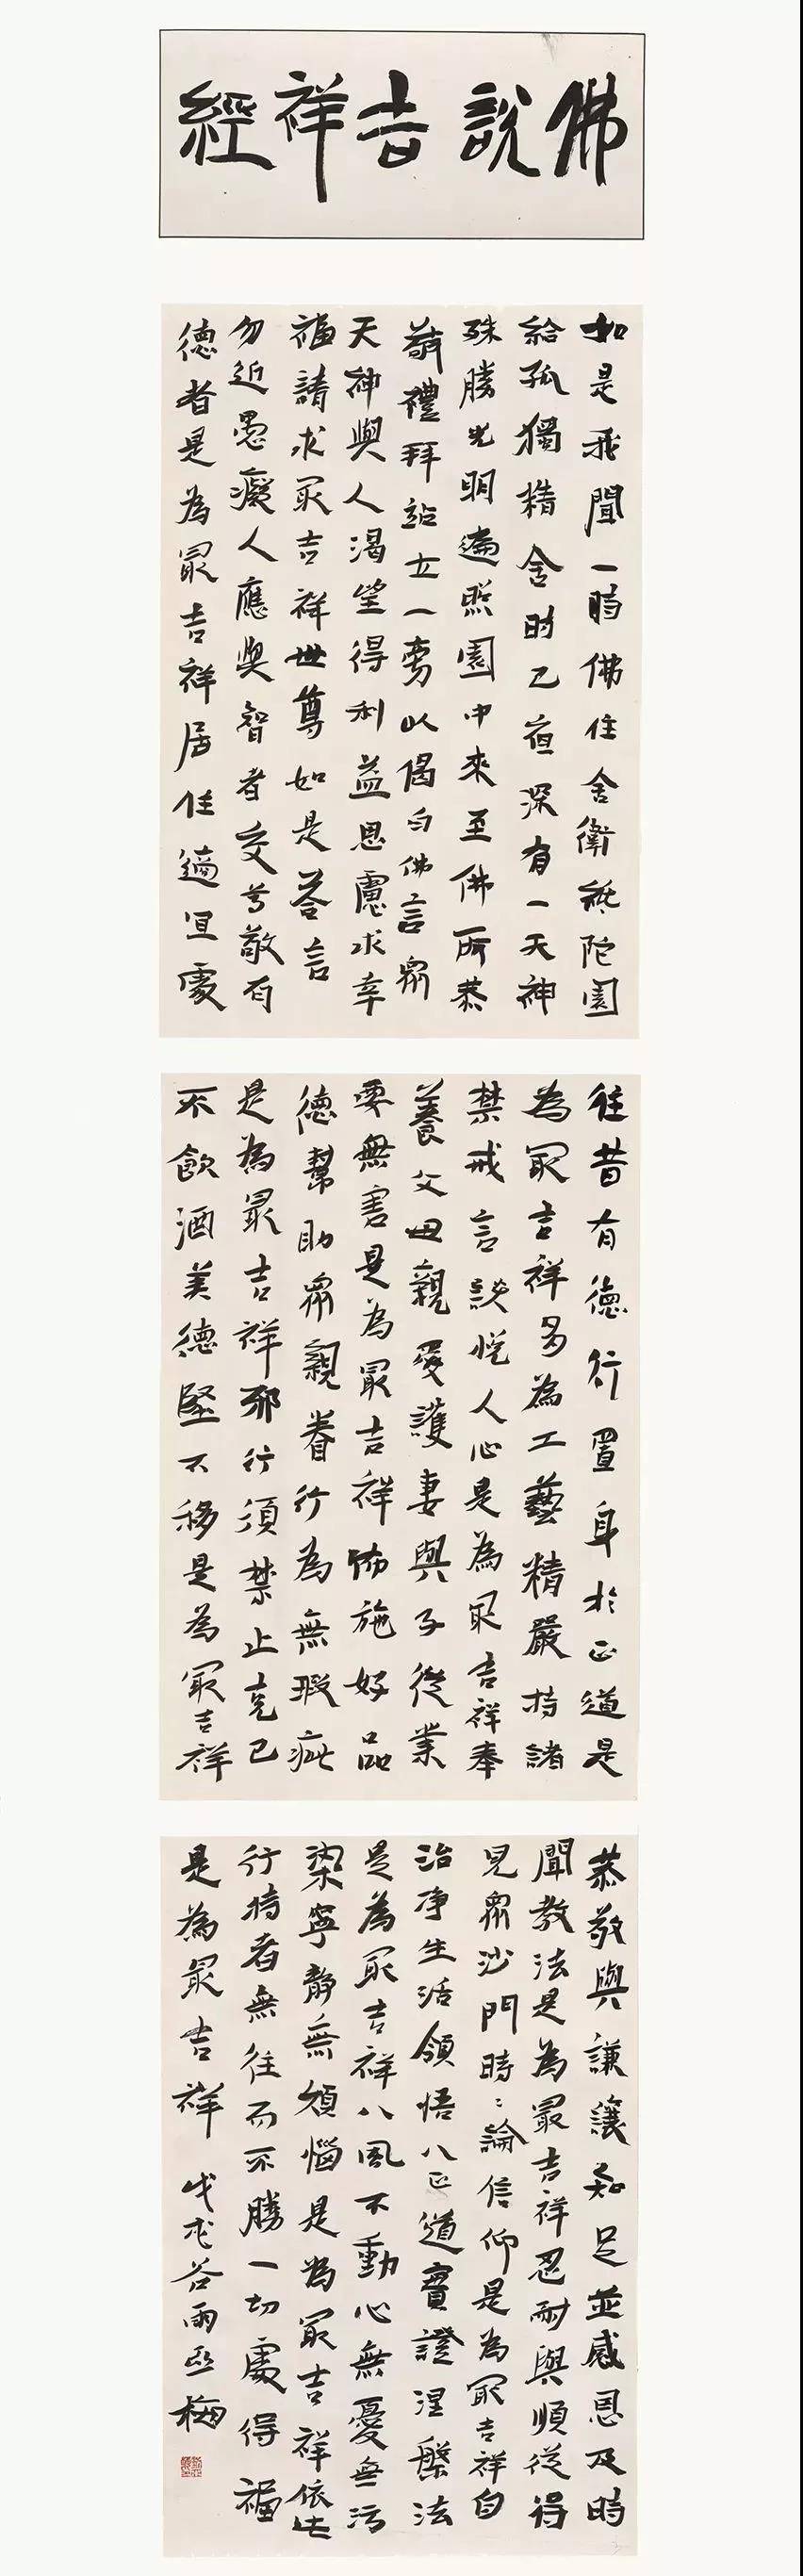 佛說吉祥經
如是我聞一時佛住舍衛祇陀園
給孤獨精舍時已夜深有一天神
殊勝光明遍照園中來至佛所恭
敬禮拜站立一旁以偈白佛言眾
天神與人渴望得利益思慮求幸
福請求最吉祥世尊如是答言
勿近愚癡人應與智者交尊敬有
德者是為最吉祥居住適宜處
往昔有德行置身於正道是
為最吉祥多為工藝精嚴持諸
禁戒言談悅人心是為最吉祥奉
養父母親愛護妻與子從業
要無害是為最吉祥佈施好品
德幫助眾親眷行為無瑕疵
是為最吉祥邪行須禁止克己
不飲酒美德堅不移是為最吉祥
恭敬與謙讓知足並感恩及時
聞教法是為最吉祥忍耐與順從得
見眾沙門時々論信仰是為最吉祥自
治淨生活領悟八正道實證涅槃法
是為最吉祥八風不動心無憂無污
染寧靜無煩惱是為最吉祥依此
行持者無往而不勝一切處得福
是為最吉祥 戊戌谷雨亞梅